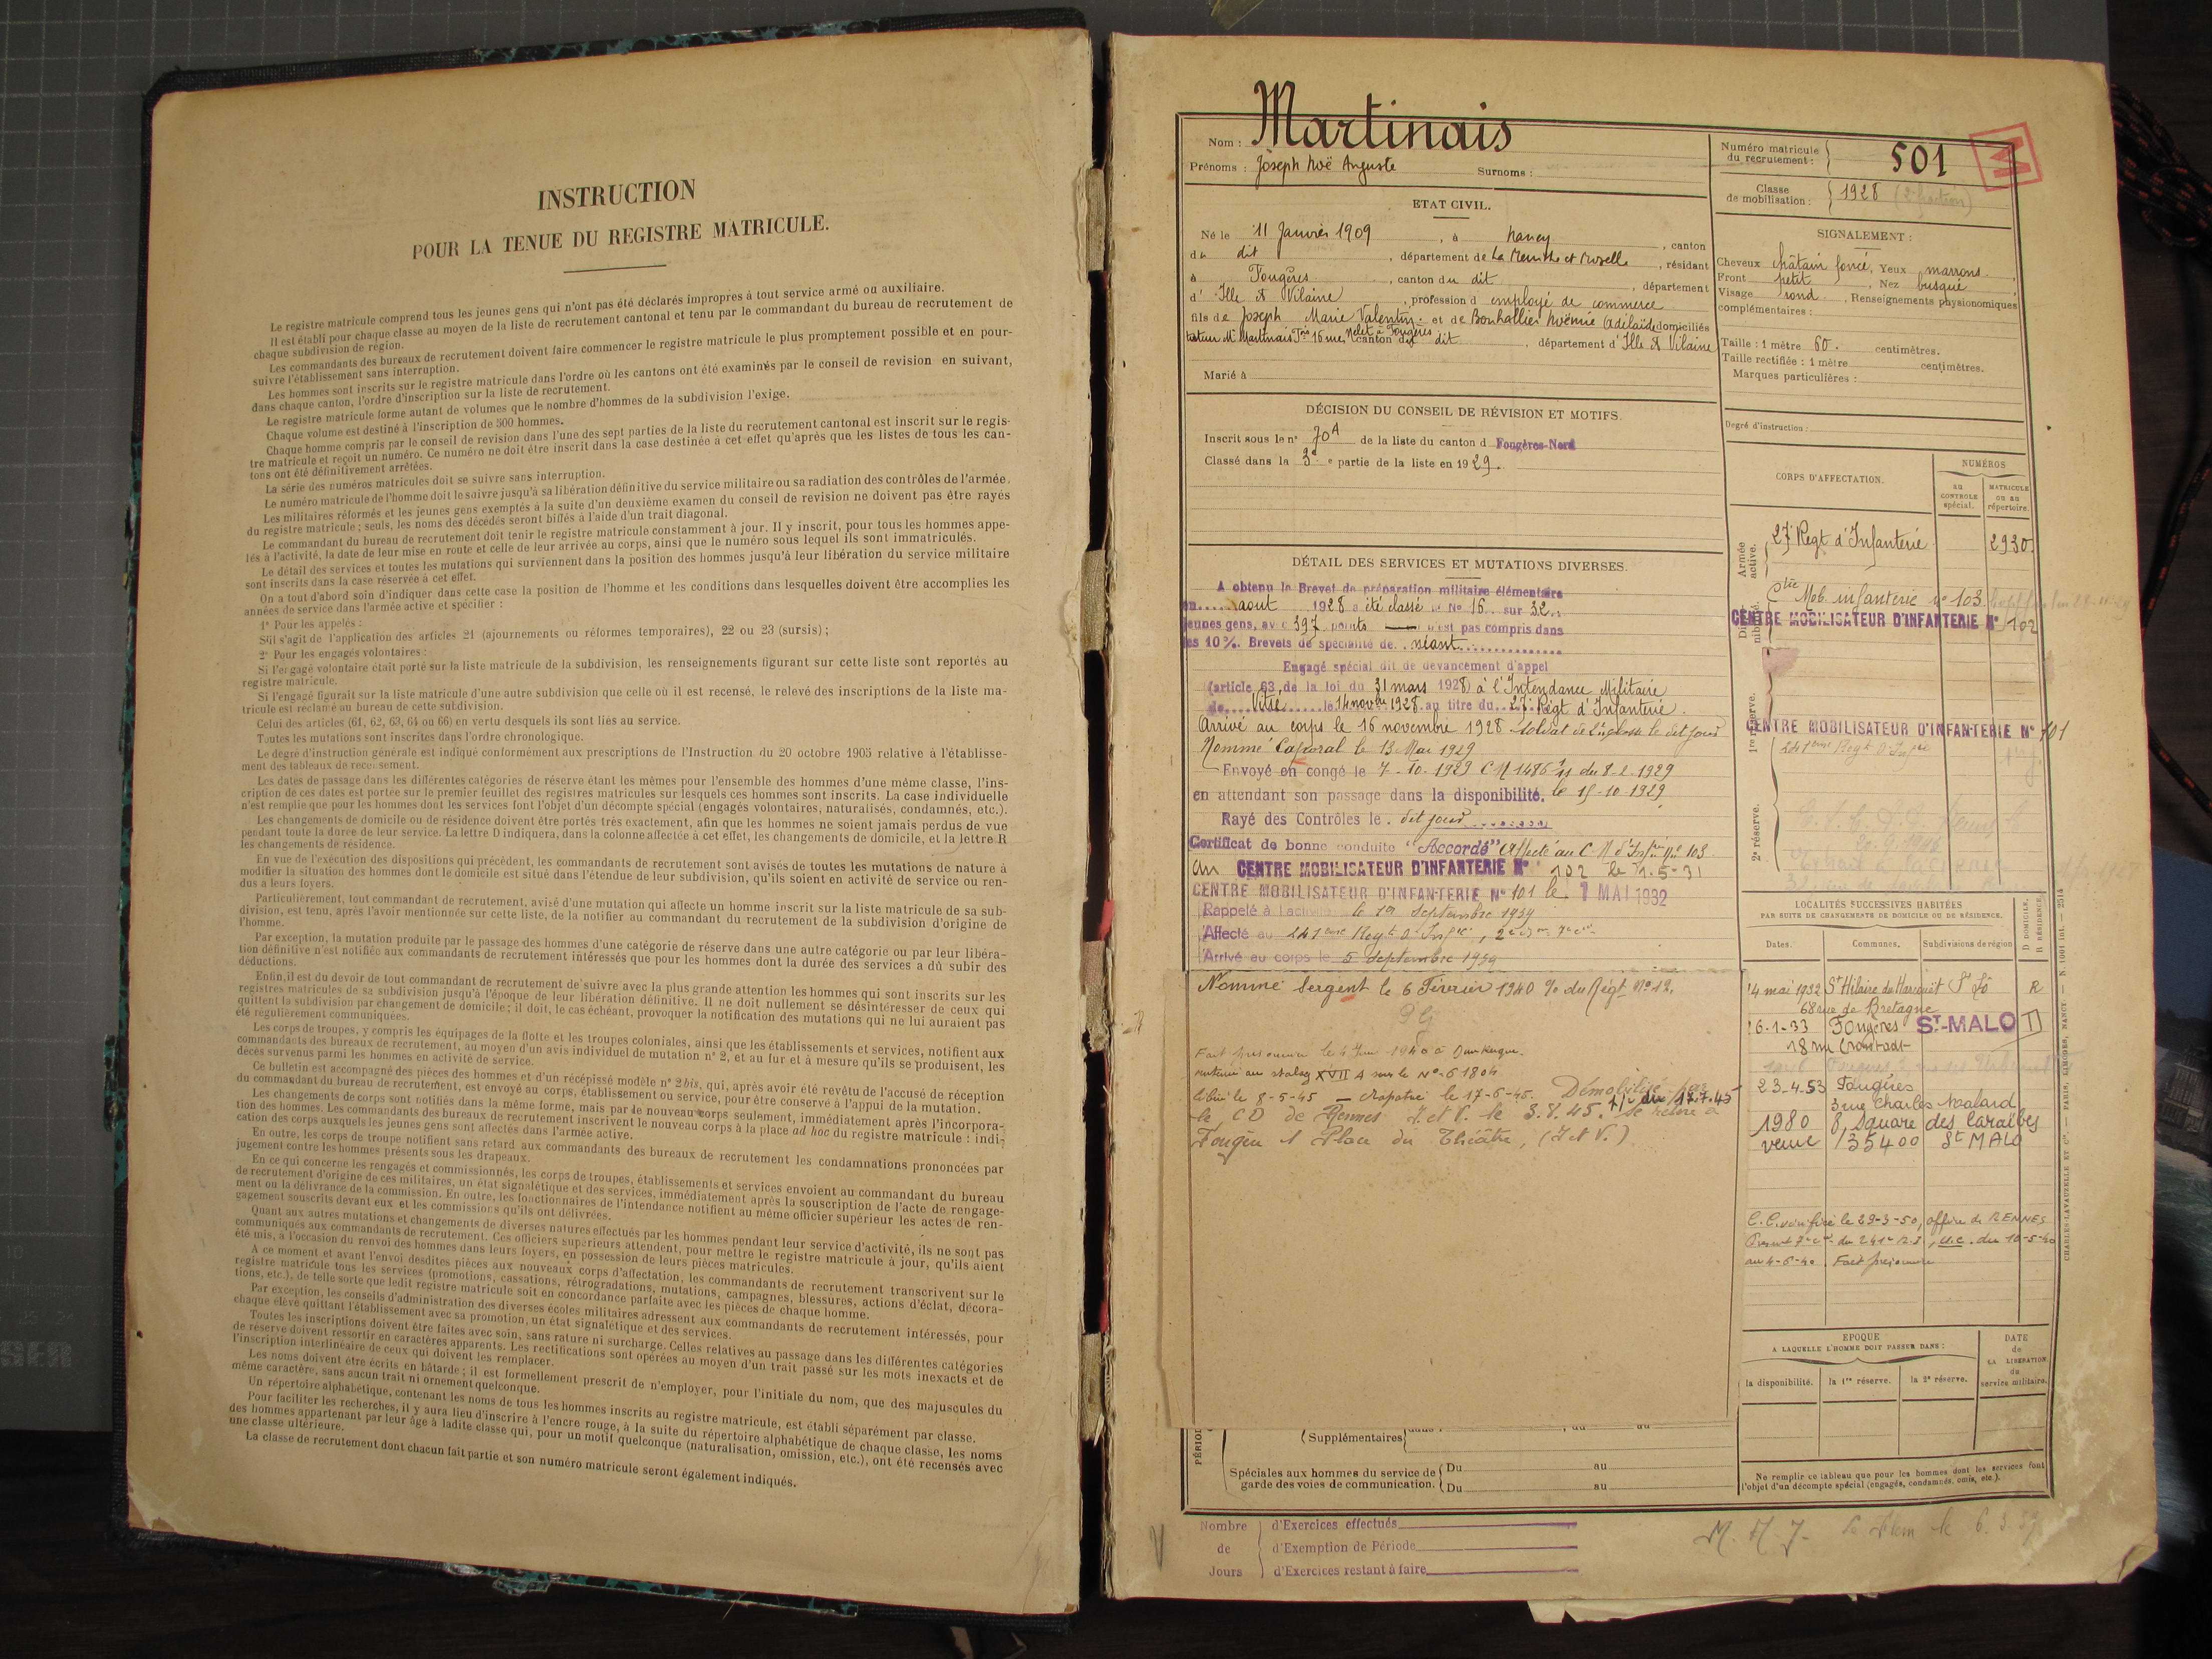 INSTRUCTION
POUR LA TENUE DU REGISTRE MATRICULE.
Le registre matricule comprend tous les jeunes gens qui n'ont pas été déclarés impropres à tout service armé ou auxiliaire.
Il est établi pour chaque classe au moyen de la liste de recrutement cantonal et tenu par le commandant du bureau de recrutement de
chaque subdivision de région.
Les commandants des bureaux de recrutement doivent faire commencer le registre matricule le plus promptement possible et en pour-
suivre l'établissement sans interruption.
Les hommes sont inscrits sur le registre matricule dans l'ordre où les cantons ont été examinés par le conseil de revision en suivant,
dans chaque canton, l'ordre d'inscription sur la liste de recrutement.
Le registre matricule forme autant de volumes que le nombre d'hommes de la subdivision l'exige.
Chaque volume est destiné à l'inscription de 500 hommes.
Chaque homme compris par le conseil de revision dans l'une des sept parties de la liste du recrutement cantonal est inscrit sur le regis-
tre matricule et reçoit un numéro. Ce numéro ne doit être inscrit dans la case destinée à cet effet qu'après que les listes de tous les can-
tons ont été définitivement arrêtées.
La série des numéros matricules doit se suivre sans interruption.
Le numéro matricule de l'homme doit le suivre jusqu'à sa libération définitive du service militaire ou sa radiation des contrôles de l'armée.
Les militaires réformés et les jeunes gens exemptés à la suite d'un deuxième examen du conseil de revision ne doivent pas être rayés
du registre matricule ; seuls, les noms des décédés seront biffés à l'aide d'un trait diagonal.
Le commandant du bureau de recrutement doit tenir le registre matricule constamment à jour. Il y inscrit, pour tous les hommes appe-
lés à l'activité, la date de leur mise en route et celle de leur arrivée au corps, ainsi que le numéro sous lequel ils sont immatriculés.
Le détail des services et toutes les mutations qui surviennent dans la position des hommes jusqu'à leur libération du service militaire
sont inscrits dans la case réservée à cet effet.
On a tout d'abord soin d'indiquer dans cette case la position de l'homme et les conditions dans lesquelles doivent être accomplies les
années de service dans l'armée active et spécifier :
1° Pour les appelés :
S'il s'agit de l'application des articles 21 (ajournements ou réformes temporaires), 22 ou 23 (sursis) ;
2° Pour les engagés volontaires :
Si l'engagé volontaire était porté sur la liste matricule de la subdivision, les renseignements figurant sur cette liste sont reportés au
registre matricule.
Si l'engagé figurait sur la liste matricule d'une autre subdivision que celle où il est recensé, le relevé des inscriptions de la liste ma-
tricule est réclamé au bureau de cette subdivision.
Celui des articles (61, 62, 63, 64 ou 66) en vertu desquels ils sont liés au service.
Toutes les mutations sont inscrites dans l'ordre chronologique.
Le degré d'instruction générale est indiqué conformément aux prescriptions de l'Instruction du 20 octobre 1905 relative à l'établisse-
ment des tableaux de recensement.
Les dates de passage dans les différentes catégories de réserve étant les mêmes pour l'ensemble des hommes d'une même classe, l'ins-
cription de ces dates est portée sur le premier feuillet des registres matricules sur lesquels ces hommes sont inscrits. La case individuelle
n'est remplie que pour les hommes dont les services font l'objet d'un décompte spécial (engagés volontaires, naturalisés, condamnés, etc.).
Les changements de domicile ou de résidence doivent être portés très exactement, afin que les hommes ne soient jamais perdus de vue
pendant toute la durée de leur service. La lettre D indiquera, dans la colonne affectée à cet effet, les changements de domicile, et la lettre R
les changements de résidence.
En vue de l'exécution des dispositions qui précèdent, les commandants de recrutement sont avisés de toutes les mutations de nature à
modifier la situation des hommes dont le domicile est situé dans l'étendue de leur subdivision, qu'ils soient en activité de service ou ren-
dus à leurs foyers.
Particulièrement, tout commandant de recrutement, avisé d'une mutation qui affecte un homme inscrit sur la liste matricule de sa sub-
division, est tenu, après l'avoir mentionnée sur cette liste, de la notifier au commandant du recrutement de la subdivision d'origine de
l'homme.
Par exception, la mutation produite par le passage des hommes d'une catégorie de réserve dans une autre catégorie ou par leur libéra-
tion définitive n'est notifiée aux commandants de recrutement intéressés que pour les hommes dont la durée des services a dû subir des
déductions.
Enfin, il est du devoir de tout commandant de recrutement de suivre avec la plus grande attention les hommes qui sont inscrits sur les
registres matricules de sa subdivision jusqu'à l'époque de leur libération définitive. Il ne doit nullement se désintéresser de ceux qui
quittent la subdivision par changement de domicile ; il doit, le cas échéant, provoquer la notification des mutations qui ne lui auraient pas
été régulièrement communiquées.
Les corps de troupes, y compris les équipages de la flotte et les troupes coloniales, ainsi que les établissements et services, notifient aux
commandants des bureaux de recrutement, au moyen d'un avis individuel de mutation n° 2, et au fur et à mesure qu'ils se produisent, les
décès survenus parmi les hommes en activité de service.
Ce bulletin est accompagné des pièces des hommes et d'un récépissé modèle n° 2 bis, qui, après avoir été revêtu de l'accusé de réception
du commandant du bureau de recrutement, est envoyé au corps, établissement ou service, pour être conservé à l'appui de la mutation.
Les changements de corps sont notifiés dans la même forme, mais par le nouveau corps seulement, immédiatement après l'incorpora-
tion des hommes. Les commandants des bureaux de recrutement inscrivent le nouveau corps à la place ad hoc du registre matricule : indi-
cation des corps auxquels les jeunes gens sont affectés dans l'armée active.
En outre, les corps de troupe notifient sans retard aux commandants des bureaux de recrutement les condamnations prononcées par
jugement contre les hommes présents sous les drapeaux.
En ce qui concerne les rengagés et commissionnés, les corps de troupes, établissements et services envoient au commandant du bureau
de recrutement d'origine de ces militaires, un état signalétique et des services, immédiatement après la souscription de l'acte de rengage-
ment ou la délivrance de la commission. En outre, les fonctionnaires de l'intendance notifient au même officier supérieur les actes de ren-
gagement souscrits devant eux et les commissions qu'ils ont délivrées.
Quant aux autres mutations et changements de diverses natures effectués par les hommes pendant leur service d'activité, ils ne sont pas
communiqués aux commandants de recrutement. Ces officiers supérieurs attendent, pour mettre le registre matricule à jour, qu'ils aient
été mis, à l'occasion du renvoi des hommes dans leurs foyers, en possession de leurs pièces matricules.
A ce moment et avant l'envoi desdites pièces aux nouveaux corps d'affectation, les commandants de recrutement transcrivent sur le
registre matricule tous les services (promotions, cassations, rétrogradations, mutations, campagnes, blessures, actions d'éclat, décora-
tions, etc.), de telle sorte que ledit registre matricule soit en concordance parfaite avec les pièces de chaque homme.
Par exception, les conseils d'administration des diverses écoles militaires adressent aux commandants de recrutement intéressés, pour
chaque élève quittant l'établissement avec sa promotion, un état signalétique et des services.
Toutes les inscriptions doivent être faites avec soin, sans rature ni surcharge. Celles relatives au passage dans les différentes catégories
de réserve doivent ressortir en caractères apparents. Les rectifications sont opérées au moyen d'un trait passé sur les mots inexacts et de
l'inscription interlinéaire de ceux qui doivent les remplacer.
Les noms doivent être écrits en bâtarde ; il est formellement prescrit de n'employer, pour l'initiale du nom, que des majuscules du
même caractère, sans aucun trait ni ornement quelconque.
Un répertoire alphabétique, contenant les noms de tous les hommes inscrits au registre matricule, est établi séparément par classe.
Pour faciliter les recherches, il y aura lieu d'inscrire à l'encre rouge, à la suite du répertoire alphabétique de chaque classe, les noms
des hommes appartenant par leur âge à ladite classe qui, pour un motif quelconque (naturalisation, omission, etc.), ont été recensés avec
une classe ultérieure.
La classe de recrutement dont chacun fait partie et son numéro matricule seront également indiqués.
Nom : Martinais
Prénoms : Joseph Noë Auguste Surnoms :
Numéro matricule du recrutement : 501
M
Classe de mobilisation : 1928 (2e fraction)
ETAT CIVIL.
Né le 11 Janvier 1909, à Nancy, canton
du dit, département de La Meurthe et Moselle, résidant
à Fougères, canton du dit, département
d'Ille et Vilaine, profession d employé de commerce
fils de Joseph Marie Valentin et de Bonhallier Noëmie Adélaïde domiciliés
canton du dit, département d'Ille et Vilaine
Marié à
SIGNALEMENT :
Cheveux châtain foncé, Yeux marrons,
Front petit, Nez busqué,
Visage rond, Renseignements physionomiques
complémentaires :
Taille : 1 mètre 60. centimètres.
Taille rectifiée : 1 mètre centimètres.
Marques particulières :
Degré d'instruction :
DÉCISION DU CONSEIL DE RÉVISION ET MOTIFS.
Inscrit sous le n° 70A de la liste du canton d Fougères-Nord
Classé dans la 3e partie de la liste en 1929.
DÉTAIL DES SERVICES ET MUTATIONS DIVERSES.
A obtenu le Brevet de préparation militaire élémentaire
en août 1928 a été classé le N° 16 sur 32
jeunes gens, avec 397 points n'est pas compris dans
les 10%. Brevets de spécialité de néant
Engagé spécial dit de devancement d'appel
(article 63 de la loi du 31 mars 1928) à l'Intendance Militaire
de Vitré le 14 novbre 1928 au titre du 27e Régt d'Infanterie.
Arrivé au corps le 16 novembre 1928 soldat de 2e classe le dit jour
Nommé Caporal le 13 Mai 1929
Envoyé en congé le 7-10-1929 du 8-2-1929
en attendant son passage dans la disponibilité. le 15-10-1929
Rayé des Contrôles le dit jour
Certificat de bonne conduite "Accordé" Affecté au C.M. d'Infrie N° 103
au CENTRE MOBILISATEUR D'INFANTERIE N° 102 le 1-5-31
CENTRE MOBILISATEUR D'INFANTERIE N° 101 le 1 MAI 1932
Rappelé à l'activité le septembre 1939
Affecté au 241ème Regt d'Infie,
Arrivé au corps le 5 septembre 1939
Nommé Sergent le 6 Février 1940 du Régt N° 12.
PG
Fait prisonnier le 4 Juin 1940 à Dunkerque.
au stalag XVII A sous le N° 61804
Libéré le 8-5-45 - Rapatrié le 17-6-45. Démobilisé par
le CD de Rennes I et V. le 3.8.45. Se retire à
Fougères 1 Place du Théâtre, (I et V.)
CORPS D'AFFECTATION.
NUMÉROS
au contrôle spécial.
matricule ou au répertoire.
Armée active.
27e Régt d'Infanterie 2930
Disponibilité.
Ctre Mob. infanterie n° 103
CENTRE MOBILISATEUR D'INFANTERIE N° 102
1re réserve.
CENTRE MOBILISATEUR D'INFANTERIE N° 101
241ème Regt d'Infie
2e réserve.
LOCALITÉS SUCCESSIVES HABITÉES
PAR SUITE DE CHANGEMENTS DE DOMICILE OU DE RÉSIDENCE.
D DOMICILE. R RÉSIDENCE.
Dates. Communes. Subdivisions de région
14 mai 1932 St Hilaire du Harcouët St Lô R
68 rue de Bretagne
16-1-33 Fougères ST-MALO D
18 rue Cronstadt
23-4-53 Fougères
3 rue Charles Malard
1980 8, Square des Caraïbes
venue 135400 St MALO
le 29-3-50, office de RENNES
au 4-6-40. Fait prisonnier
EPOQUE
A LAQUELLE L'HOMME DOIT PASSER DANS :
DATE de LA LIBÉRATION du service militaire.
la disponibilité. la 1re réserve. la 2e réserve.
Ne remplir ce tableau que pour les hommes dont les services font
l'objet d'un décompte spécial (engagés, condamnés, omis, etc.).
Supplémentaires
Spéciales aux hommes du service de garde des voies de communication.
Du au
Du au
Nombre de Jours
d'Exercices effectués
d'Exemption de Période
d'Exercices restant à faire
CHARLES-LAVAUZELLE ET Cie. — PARIS, LIMOGES, NANCY.